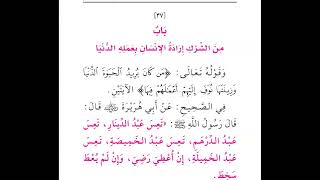 [٣٧]
بَابٌ
مِنَ الشِّرْكِ إِرَادَةُ الْإِنْسَانِ بِعَمَلِهِ الدُّنْيَا
وَقَوْلُهُ تَعَالَى: ﴿مَن كَانَ يُرِيدُ الْحَيَوٰةَ الدُّنْيَا
وَزِينَتَهَا نُوَفِّ إِلَيْهِمْ أَعْمَٰلَهُمْ فِيهَا﴾ الْآيَتَيْنِ.
فِي الصَّحِيحِ: عَنْ أَبِي هُرَيْرَةَ ﷺ قَالَ:
قَالَ رَسُولُ اللَّهِ ﷺ: «تَعِسَ عَبْدُ الدِّينَارِ، تَعِسَ
عَبْدُ الدِّرْهَمِ، تَعِسَ عَبْدُ الْخَمِيصَةِ، تَعِسَ
عَبْدُ الْخَمِيلَةِ، إِنْ أُعْطِيَ رَضِيَ، وَإِنْ لَمْ يُعْطَ
سَخِطَ،